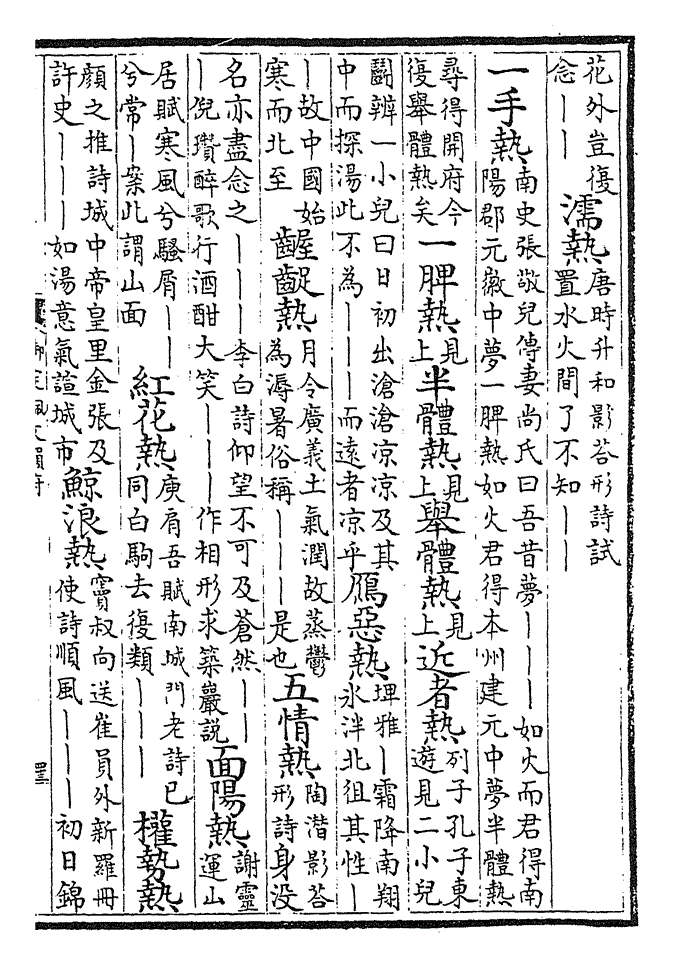 花外豈復念｜｜濡熱唐時升和影荅形詩試置水火間了不知｜｜
一手熱南史張敬兒傳妻尚氏曰吾昔夢｜｜｜如火而君得南陽郡元徽中夢一脾熱如火君得本州建元中夢半體熱
尋得開府今復舉體熱矣一脾熱見上半體熱見上舉體熱見上近者熱列子孔子東遊見二小兒
鬭辨一小兒曰日初出滄滄凉凉及其中而探湯此不為｜｜｜而遠者凉乎鴈惡熱埤雅｜霜降南翔氷泮北徂其性｜
｜故中國始寒而北至齷齪熱月令廣義土氣潤故蒸鬱為溽暑俗稱｜｜｜是也五情熱陶潛影荅形詩身没
名亦盡念之｜｜｜李白詩仰望不可及蒼然｜｜｜倪瓚醉歌行酒酣大笑｜｜｜作相形求築巖説面陽熱謝靈運山
居賦寒風兮騷屑｜｜兮常｜案此謂山面紅花熱庾肩吾賦南城門老詩已同白駒去復類｜｜｜權勢熱
顔之推詩城中帝皇里金張及許史｜｜｜如湯意氣諠城市鯨浪熱竇叔向送崔員外新羅冊使詩順風｜｜｜初日錦